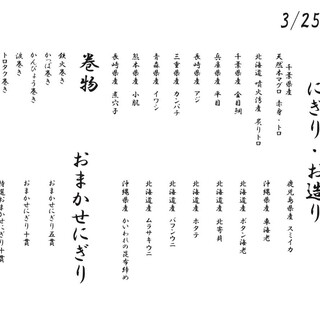 3/25
にぎり・お造り
千葉県産
天然本マグロ 赤身・トロ
北海道 噴火湾産 炙りトロ
千葉県 金目鯛
兵庫県 平目
長崎県 アジ
三重県 カンパチ
青森県 イワシ
熊本県 小肌
長崎県 煮穴子
鹿児島県産 スミイカ
沖縄県産 車海老
北海道産 ボタン海老
北海道産 北寄貝
北海道産 ホタテ
北海道産 バフンウニ
北海道産 ムラサキウニ
沖縄県産 かいわれの昆布締め
巻物
鉄火巻き
かっぱ巻き
かんぴょう巻き
涙巻き
トロタク巻き
おまかせにぎり
おまかせにぎり五貫
おまかせにぎり十貫
特選おまかせにぎり十貫